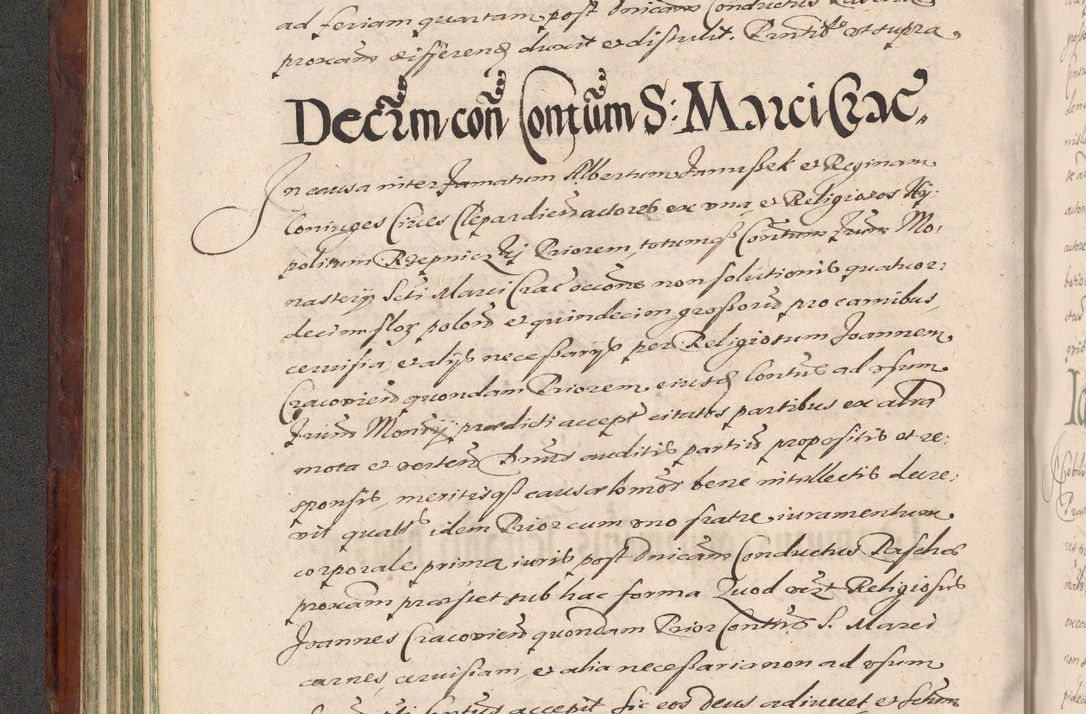 ad feriam quartam post Dnicam Conductus
proxam differend duxit et distulit. Pntib ut supra
Decrtm con Contum S: Marci Crac
In causa inter Famatum Albertum Janussek et Reginam
Coniuges Cives Clepardien actores ex vna, et Religiosos Hy:
politum Rzepnicz Priorem, totumq Contum Frum Mo:
nastery Scti Marci Crac occone non solutionis quatuor:
decim flor polon et quindecim grossoru pro carnibus,
cervisia, et alys necessarys per Religiosum Joannem
Cracovien quondam Priorem eiusd Contus ad vsum
Frum Monry prædicti accept citatos partibus ex
mota et verten Dnus auditis partiu propositis et re:
sponsis, meritisq causæ bene intellectis decre:
vit quats idem Prior cum vno fratre iuramentum
corporale prima iuris post Dnicam Conductus Paschæ
proxam præstet sub hac forma Quod Religiosus
Joannes Cracovien quondam Prior Contus S. Marci
carnes, cervisiam, et alia necessaria non ad vsum
accepit sic eos Deus adiuvet et